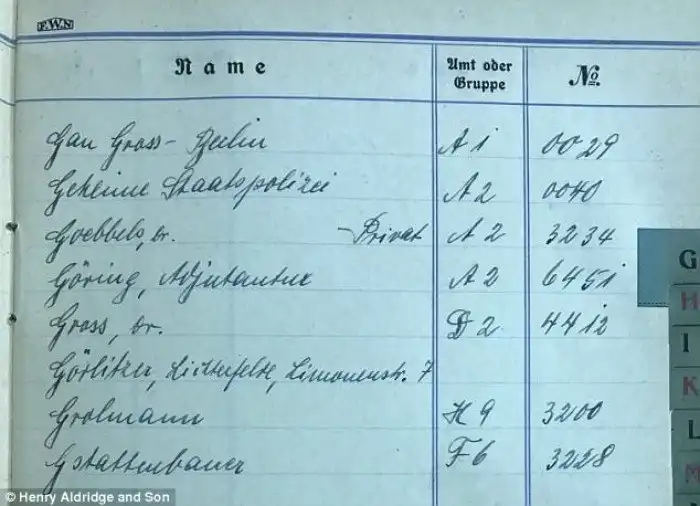 F.W.S
Name Amt oder Gruppe No.
Gau Gross-Berlin A1 0029
Geheime Staatspolizei A2 0040
Goebbels, Dr. - Privat A2 3234
Göring, Adjutantur A2 6451
Gross, Dr. D2 4412
Görlitzer, Lichterfelde, Limonenstr. 7
Grolmann H9 3200
Gstattenbauer F6 3228
G
H
I
K
L
M
© Henry Aldridge and Son